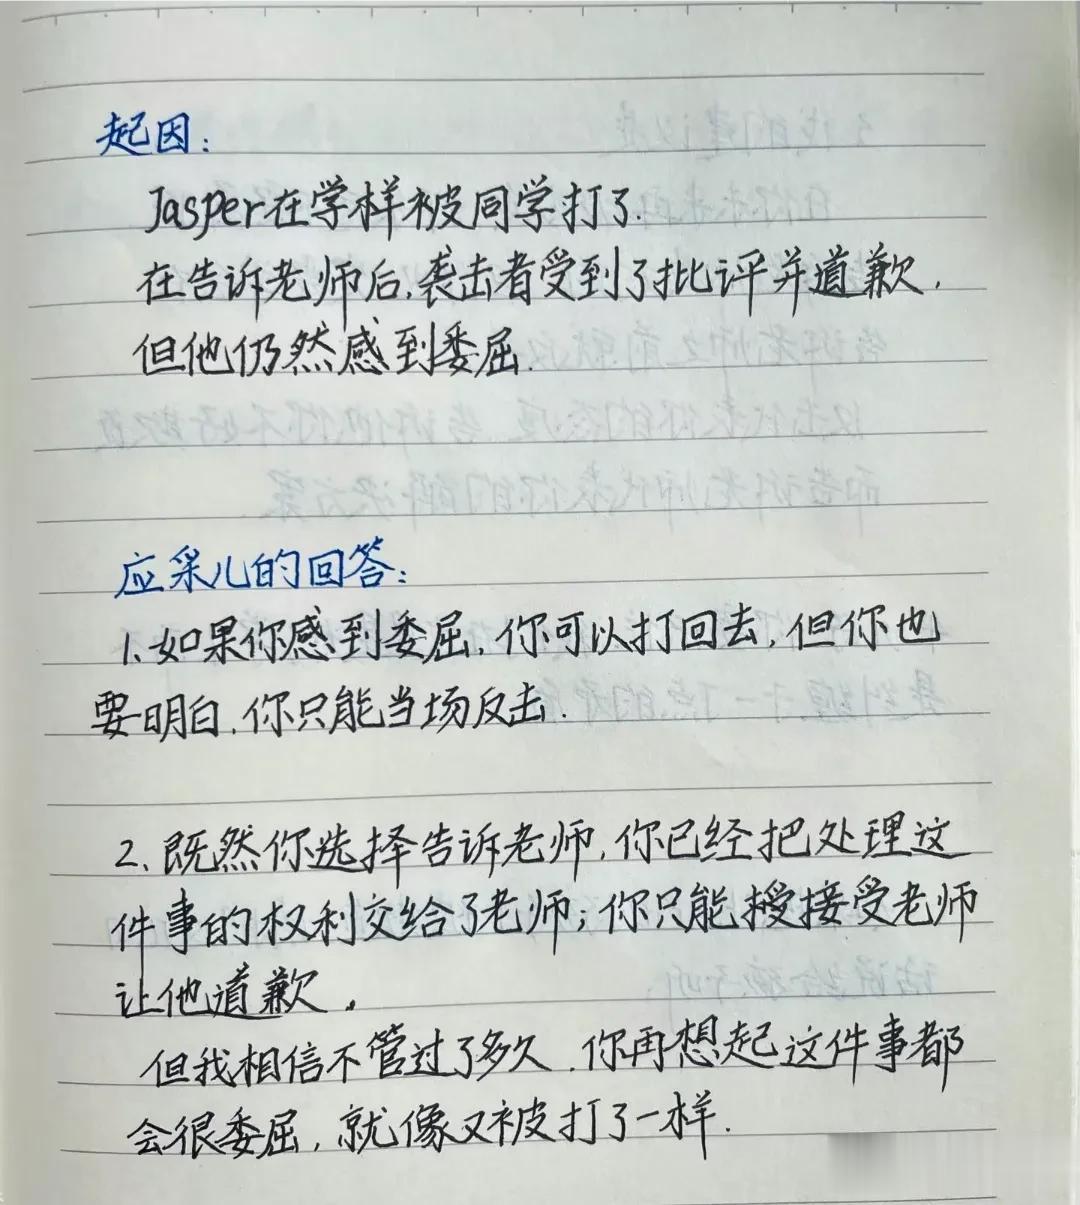 起因：
Jasper在学样被同学打了.
在告诉老师后,袭击者受到了批评并道歉,
但他仍然感到委屈.
应采儿的回答：
1、如果你感到委屈,你可以打回去,但你也
要明白,你只能当场反击.
2、既然你选择告诉老师,你已经把处理这
件事的权利交给了老师;你只能授接受老师
让他道歉。
但我相信不管过了多久,你再想起这件事都
会很委屈,就像又被打了一样.